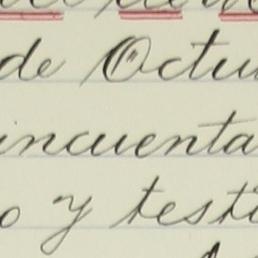 de Octu
incuenta
o y testi